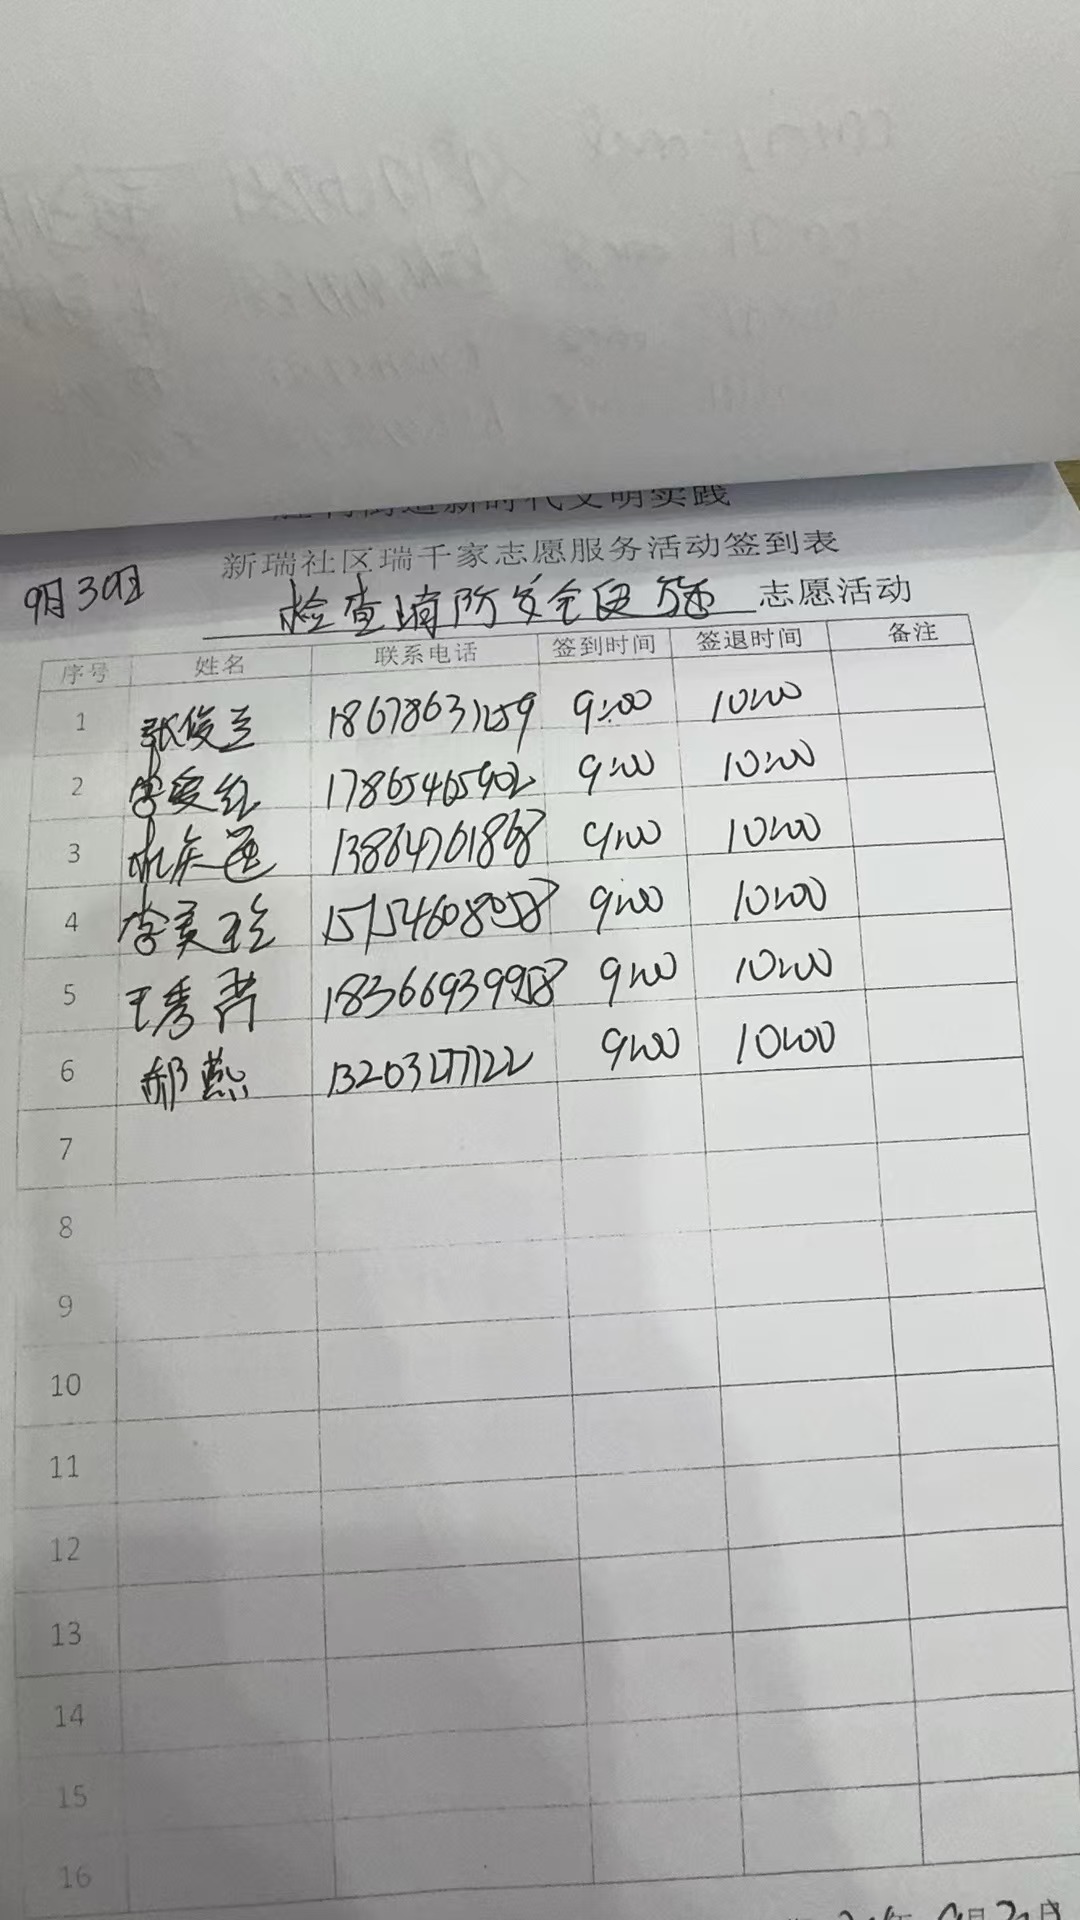 新时代文明实践
新瑞社区瑞千家志愿服务活动签到表
9月30日
检查消防安全设施 志愿活动
序号 姓名 联系电话 签到时间 签退时间 备注
1 张俊兰 18678631159 9:00 10:00
2 李爱红 17865465902 9:00 10:00
3 13864701868 9:00 10:00
4 李美玲 15154608058 9:00 10:00
5 王秀芳 18366939958 9:00 10:00
6 郝燕 9:00 10:00
7
8
9
10
11
12
13
14
15
16